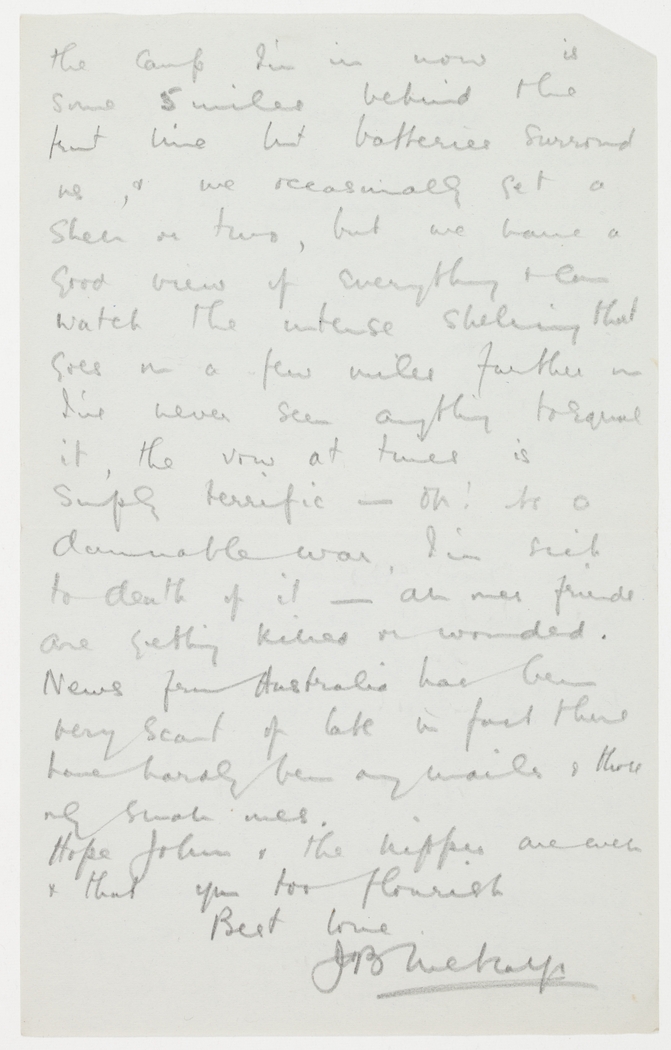 the camp I'm in now is
some 5 miles behind the
front line but batteries surround
us, & we occasionally get a
shell or two, but we have a
good view of everything & can
watch the intense shelling that
goes on a few miles further on
I've never seen anything to equal
it, the row at times is
simply terrific — Oh! its a
damnable war, I'm sick
to death of it — all ones friends
are getting killed or wounded.
News from Australia has been
very scant of late in fact there
have hardly been any mails & those
only small ones.
Hope John & the nipper are well
& that you too flourish
Best love
JB Metcalfe